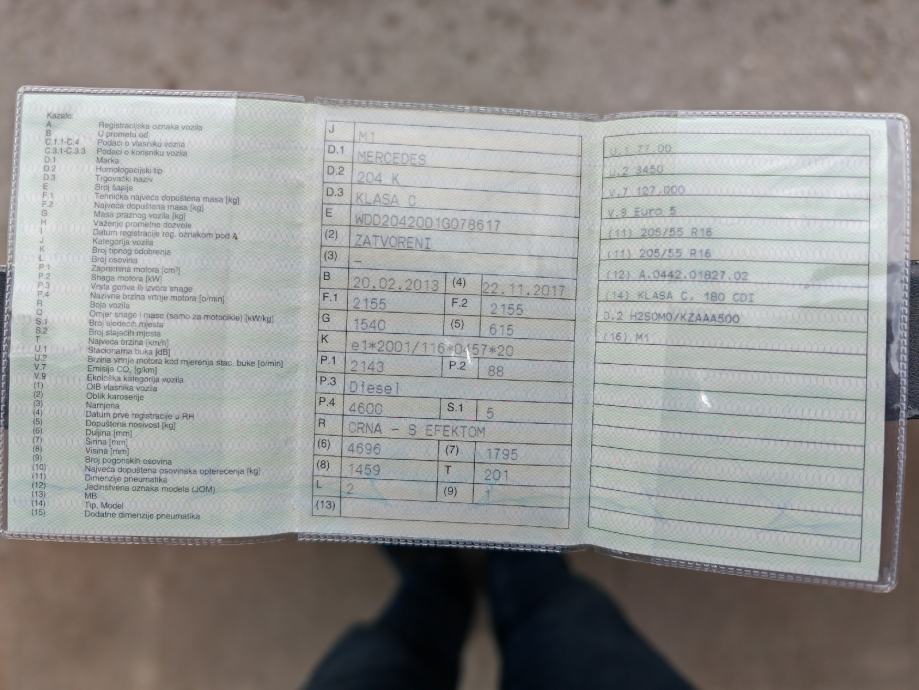 Kazalo:
A Registracijska oznaka vozila
B U prometu od
C.1.1-C.4 Podaci o vlasniku vozila
C.3.1-C.3.3 Podaci o korisniku vozila
D.1 Marka
D.2 Homologacijski tip
D.3 Trgovački naziv
E Broj šasije
F.1 Tehnička najveća dopuštena masa [kg]
F.2 Najveća dopuštena masa [kg]
G Masa praznog vozila [kg]
H Važenje prometne dozvole
I Datum registracije reg. oznakom pod A
J Kategorija vozila
K Broj tipnog odobrenja
L Broj osovina
P.1 Zapremina motora [cm³]
P.2 Snaga motora [kW]
P.3 Vrsta goriva ili izvora snage
P.4 Nazivne brzine vrtnje motora [o/min]
R Boja vozila
Q Omjer snage i mase (samo za motocikle) [kW/kg]
S.1 Broj sjedećih mjesta
S.2 Broj stajaćih mjesta
T Najveća brzina [km/h]
U.1 Stacionarna buka [dB]
U.2 Brzina vrtnje motora kod mjerenja stac. buke [o/min]
V.7 Emisija CO₂ [g/km]
V.9 Ekološka kategorija vozila
(1) OIB vlasnika vozila
(2) Oblik karoserije
(3) Namjena
(4) Datum prve registracije u RH
(5) Dopuštena nosivost [kg]
(6) Duljina [mm]
(7) Širina [mm]
(8) Visina [mm]
(9) Broj pogonskih osovina
(10) Najveća dopuštena osovinska opterećenja [kg]
(11) Dimenzije pneumatika
(12) Jedinstvena oznaka modela (JOM)
(13) MB
(14) Tip, Model
(15) Dodatne dimenzije pneumatika
J M1
D.1 MERCEDES
D.2 204 K
D.3 KLASA C
E WDD2042001G078617
(2) ZATVORENI
(3) –
B 20.02.2013 (4) 22.11.2017
F.1 2155 F.2 2155
G 1540 (5) 615
K e1*2001/116*0457*20
P.1 2143 P.2 88
P.3 Diesel
P.4 4600 S.1 5
R CRNA - S EFEKTOM
(6) 4696 (7) 1795
(8) 1459 T 201
L 2 (9) 1
(13)
U.1 77.00
U.2 3450
V.7 127.000
V.9 Euro 5
(11) 205/55 R16
(11) 205/55 R16
(12) A.0442.01827.02
(14) KLASA C, 180 CDI
D.2 H2S0M0/KZAAA500
(16) M1